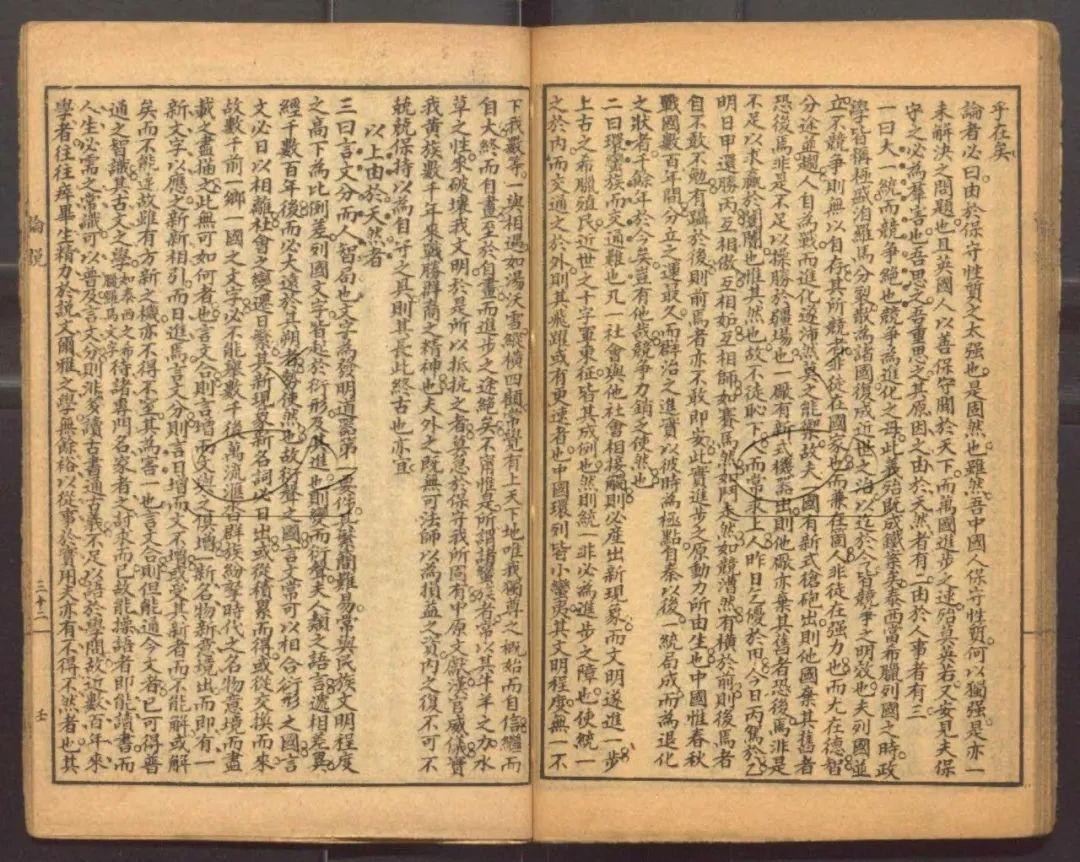 乎在矣
論者必曰由於保守性質之太强也是固然也雖然吾中國人保守性質何以獨强是亦一
未解決之問題也且英國人以善保守聞於天下而萬國進步之速殆莫英若又安見夫保
守之必為羣害也吾思之吾重思之其原因之由於天然者有二由於人事者有三
一曰大一統而競爭絕也競爭為進化之母此義殆既成鐵案矣泰西當希臘列國之時政
學皆稱極盛洎羅馬分裂散為諸國復成近世之治以迄於今皆競爭之明效也夫列國並
立不競爭則無以自存其所競者非徒在國家也而兼在箇人非徒在强力也而尤在德智
分途並趨人自為戰而進化遂沛然莫之能禦故夫一國有新式槍砲出則他國棄其舊者
恐後焉非是不足以操勝於疆場也一厰有新式機器出則他厰亦棄其舊者恐後焉非是
不足以求贏於闤闠也惟其然也故不徒恥下人而常求上人昨日乙優於甲今日丙駕於乙
明日甲還勝丙互相傲互相妬互相師如賽馬然如鬥走然如競漕然有橫於前則後焉者
自不敢不勉有躡於後則前焉者亦不敢即安此實進步之原動力所由生也中國惟春秋
戰國數百年間分立之運最久而群治之進實以彼時為極點自秦以後一統局成而為退化
之狀者千餘年於今矣豈有他哉競爭力銷乏使然也
二曰環蠻族而交通難也凡一社會與他社會相接觸則必產出新現象而文明遂進一步
上古之希臘殖民近世之十字軍東征皆其成例也然則統一非必為進步之障也使統一
之於內而交通之於外則其飛躍或有更速者也中國環列皆小蠻夷其文明程度無一不
下我數等一與相遇如湯沃雪縱橫四顧常覺有上天下地唯我獨尊之概始而自信繼而
自大終而自畫至於自畫而進步之途絕矣不甯惟是所謂諸蠻族者常以其牛羊之力水
草之性來破壞我文明於是所以抵抗之者莫急於保守我所固有中原文獻漢官威儀實
我黃族數千年來戰勝群裔之精神也夫外之既無可法師以為損益之資內之復不可不
兢兢保持以為自守之具則其長此終古也亦宜
以上由於天然者
三曰言文分而人智局也文字為發明道器第一要件其繁簡難易常與民族文明程度
之高下為比例差列國文字皆起於衍形及其進也則變而衍聲夫人類之語言遞相差異
經千數百年後而必大遠於其朔者勢使然也故衍聲之國言文常可以相合衍形之國言
文必日以相離社會之變遷日繁其新現象新名詞必日出或從積累而得或從交換而來
故數千前一鄉一國之文字必不能舉數千後萬流滙沓群族紛拏時代之名物意境而盡
載之盡描之此無可如何者也言文合則言增而文與之俱增一新名物新意境出而即有一
新文字以應之新新相引而日進焉言文分則言日增而文不增或受其新者而不能解或解
矣而不能達故雖有方新之機亦不得不窒其為害一也言文合則但能通今文者已可得普
通之智識其古文之學如泰西之希臘羅馬文字待諸專門名家者之討求而已故能操語者即能讀書而
人生必需之常識可以普及言文分則非多讀古書通古義不足以語於學問故近數百年來
學者往往瘁畢生精力於說文爾雅之學無餘裕以從事於實用夫亦有不得不然者也其
論說
三十二